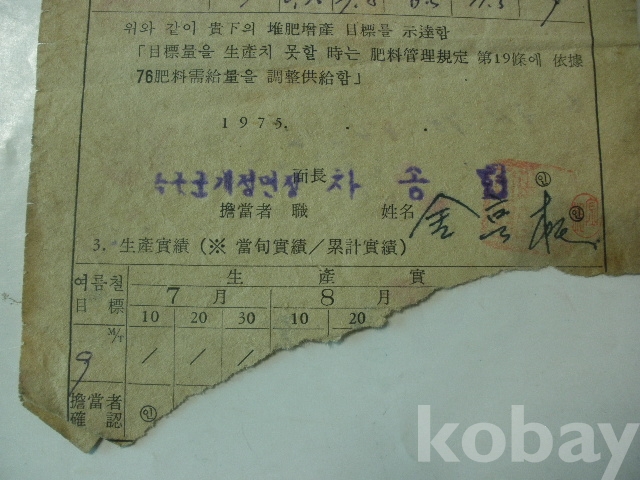 위와 같이 貴下의 堆肥增產 目標를 示達함
「目標量을 生產치 못할 時는 肥料管理規定 第19條에 依據
76肥料需給量을 調整供給함」
1975. . .
개정면장 面長 차 종
擔當者 職 姓名 金
3. 生產實績 (※ 當旬實績/累計實績)
여름철 目標 生 產 實
7 月 8 月
10 20 30 10 20
M/T
9 / / /
擔當者 確認 인
kobay